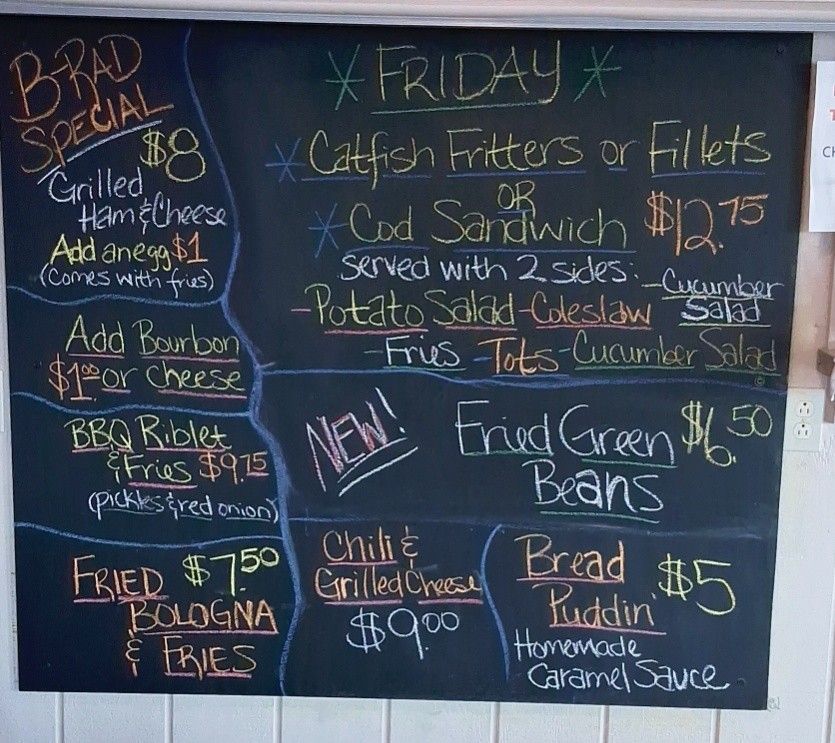 B-RAD
SPECIAL
$8
Grilled
Ham & Cheese
Add an egg $1
(Comes with fries)
Add Bourbon
$1.00 or cheese
BBQ Riblet
& Fries $9.75
(pickles & red onion)
FRIED $7.50
BOLOGNA
& FRIES
* FRIDAY *
* Catfish Fritters or Fillets
OR
* Cod Sandwich $12.75
served with 2 sides: - Cucumber
Salad
- Potato Salad - Coleslaw
- Fries - Tots - Cucumber Salad
NEW!
Fried Green $6.50
Beans
Chili &
Grilled Cheese
$9.00
Bread $5
Puddin'
Homemade
Caramel Sauce